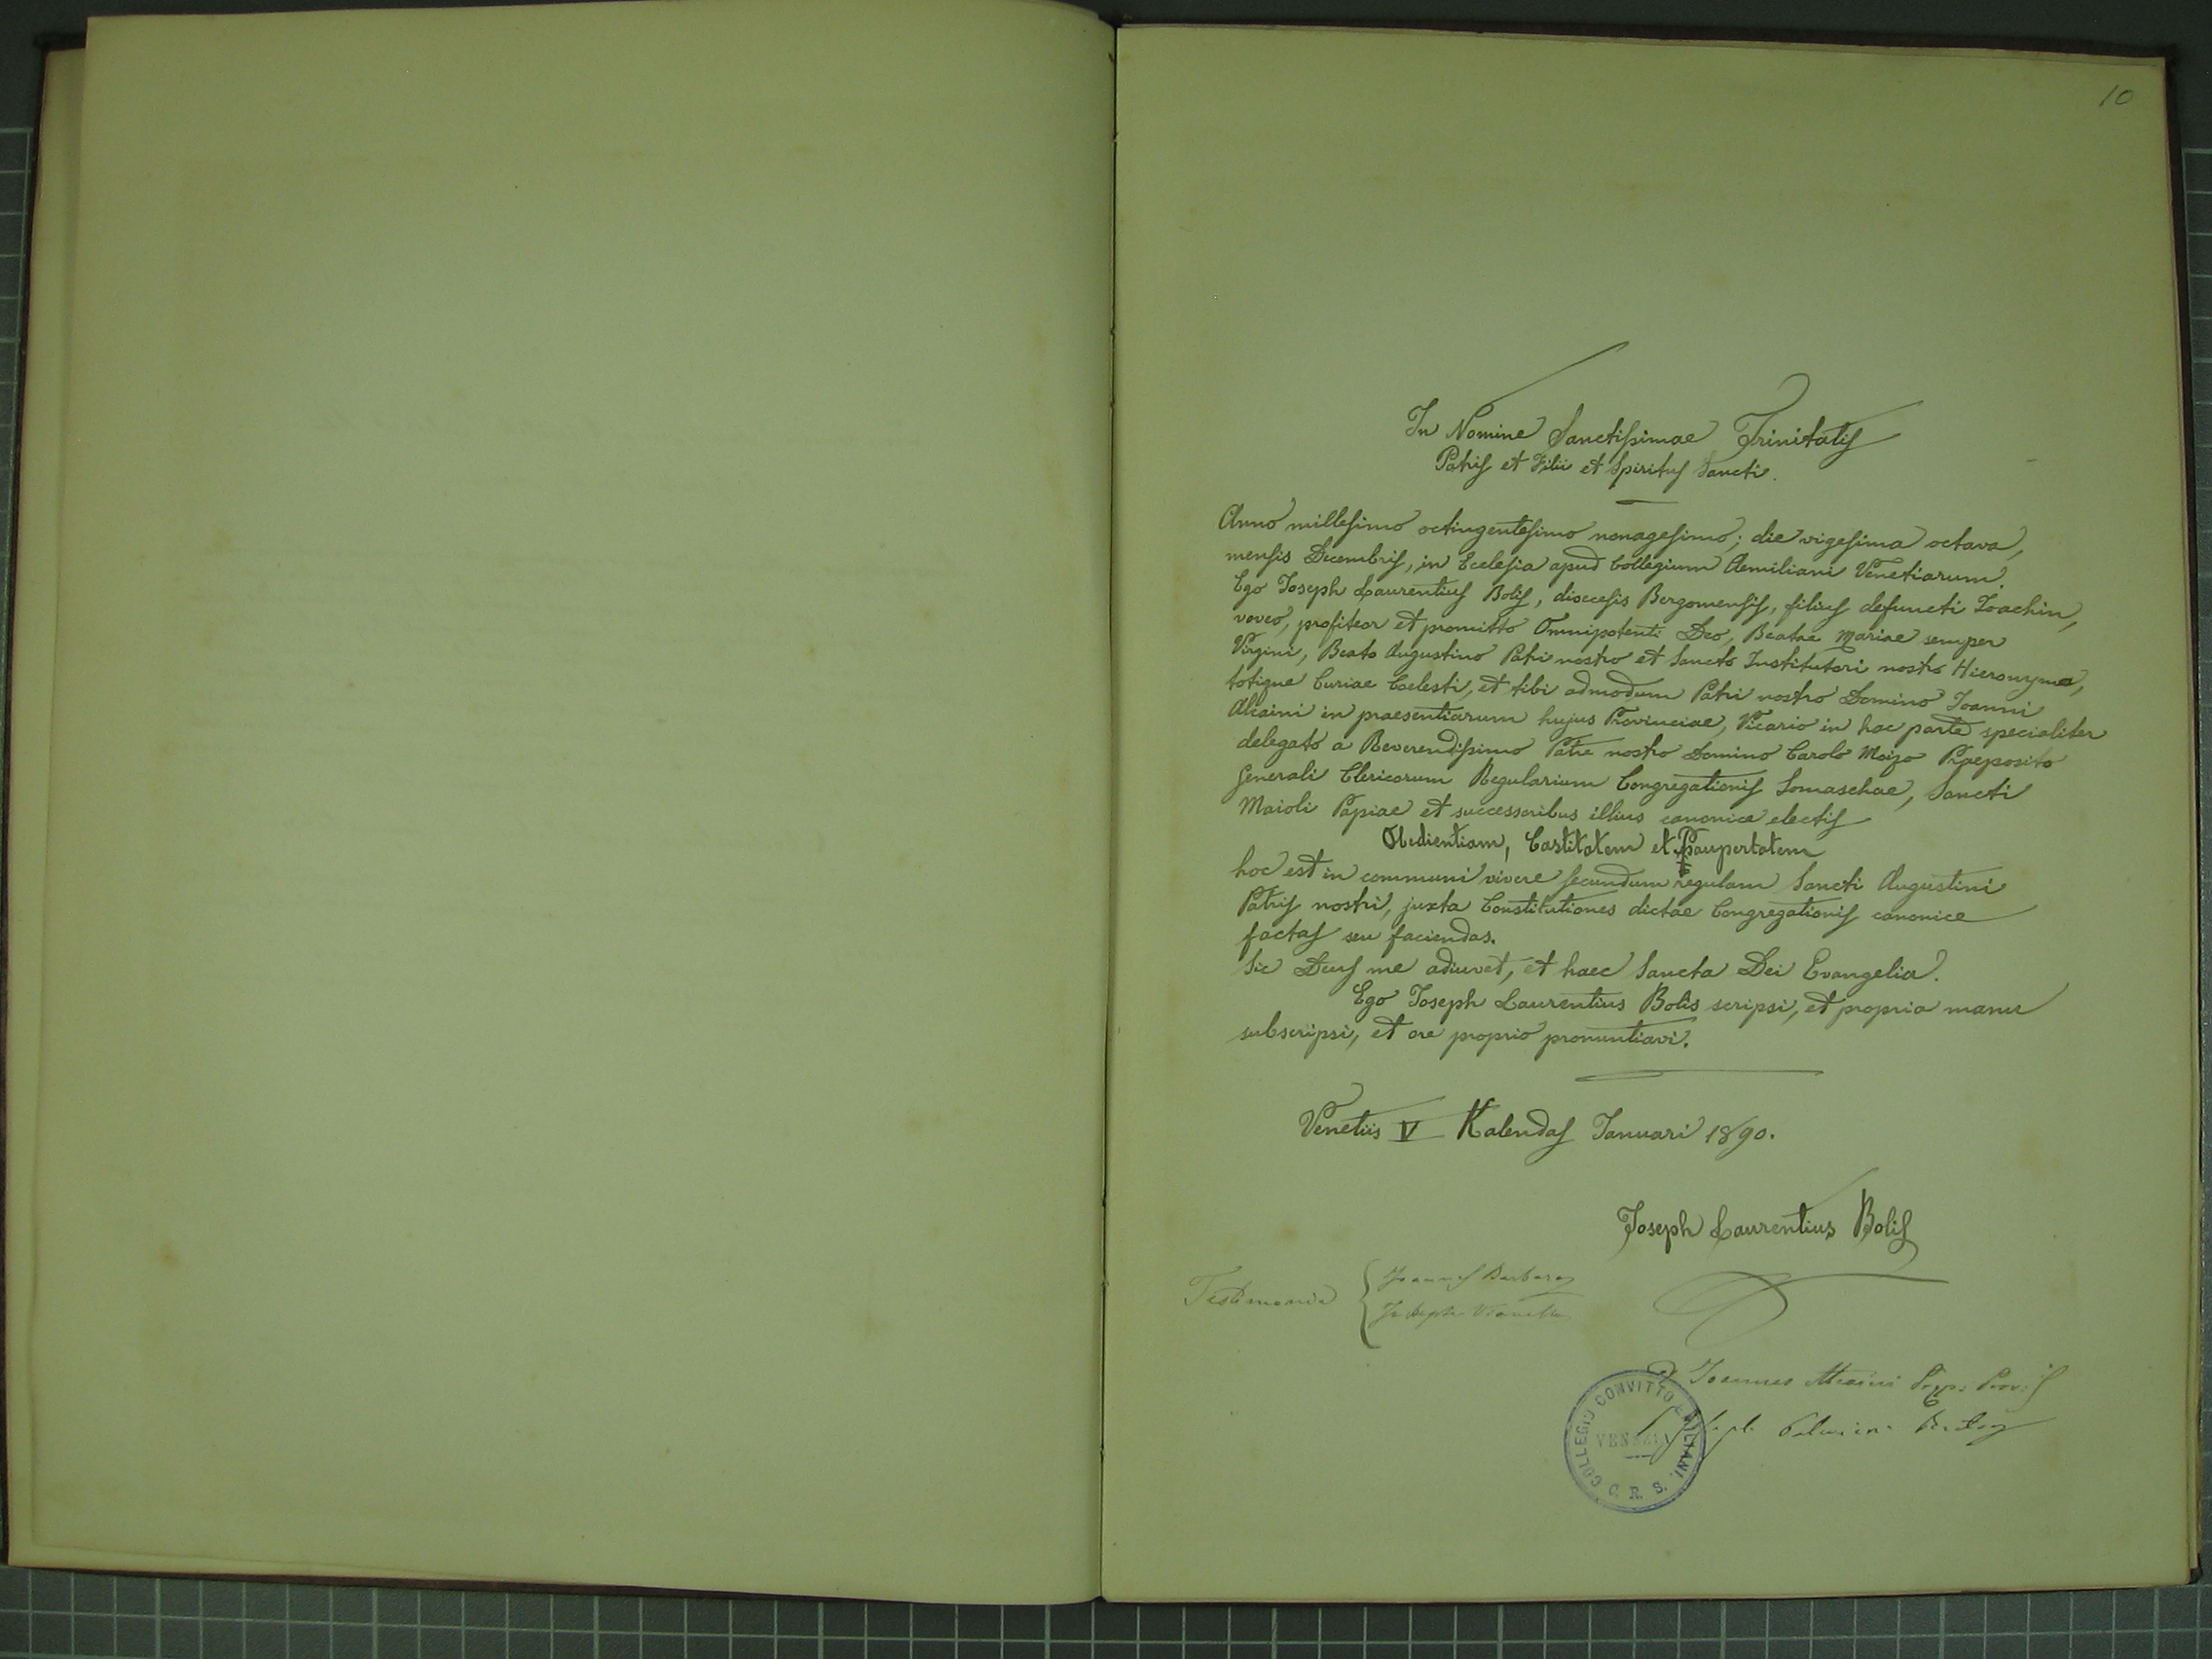 10
In Nomine Sanctissimae Trinitatis
Patris et Filii et Spiritus Sancti.
Anno millesimo octingentesimo nonagesimo; die vigesima octava,
mensis Decembris, in Ecclesia apud Collegium Aemiliani Venetiarum.
Ego Joseph Laurentius Bolis, dioecesis Bergomensis, filius defuncti Joachin,
voveo, profiteor et promitto Omnipotenti Deo, Beatae Mariae semper
Virgini, Beato Augustino Patri nostro et Sancto Institutori nostro Hieronymo,
totique Curiae Coelesti, et tibi admodum Patri nostro Domino Joanni
Alcaini in praesentiarum hujus Provinciae, Vicario in hac parte specialiter
delegato a Reverendissimo Patre nostro Domino Carolo Moizo Praeposito
Generali Clericorum Regularium Congregationis Somaschae, Sancti
Maioli Papiae et successoribus illius canonice electis
Obedientiam, Castitatem et Paupertatem
hoc est in communi vivere secundum regulam Sancti Augustini
Patris nostri, juxta Constitutiones dictae Congregationis canonice
factas seu faciendas.
Sic Deus me adiuvet, et haec Sancta Dei Evangelia.
Ego Joseph Laurentius Bolis scripsi, et propria manu
subscripsi, et ore proprio pronuntiavi.
Venetiis V Kalendas Januari 1890.
Joseph Laurentius Bolis
Testimonia { Joannes Barbaro
Joseph Vianello
D. Joannes Alcaini Prep. Prov.
COLLEGIO CONVITTO EMILIANI. C. R. S.
VENEZIA